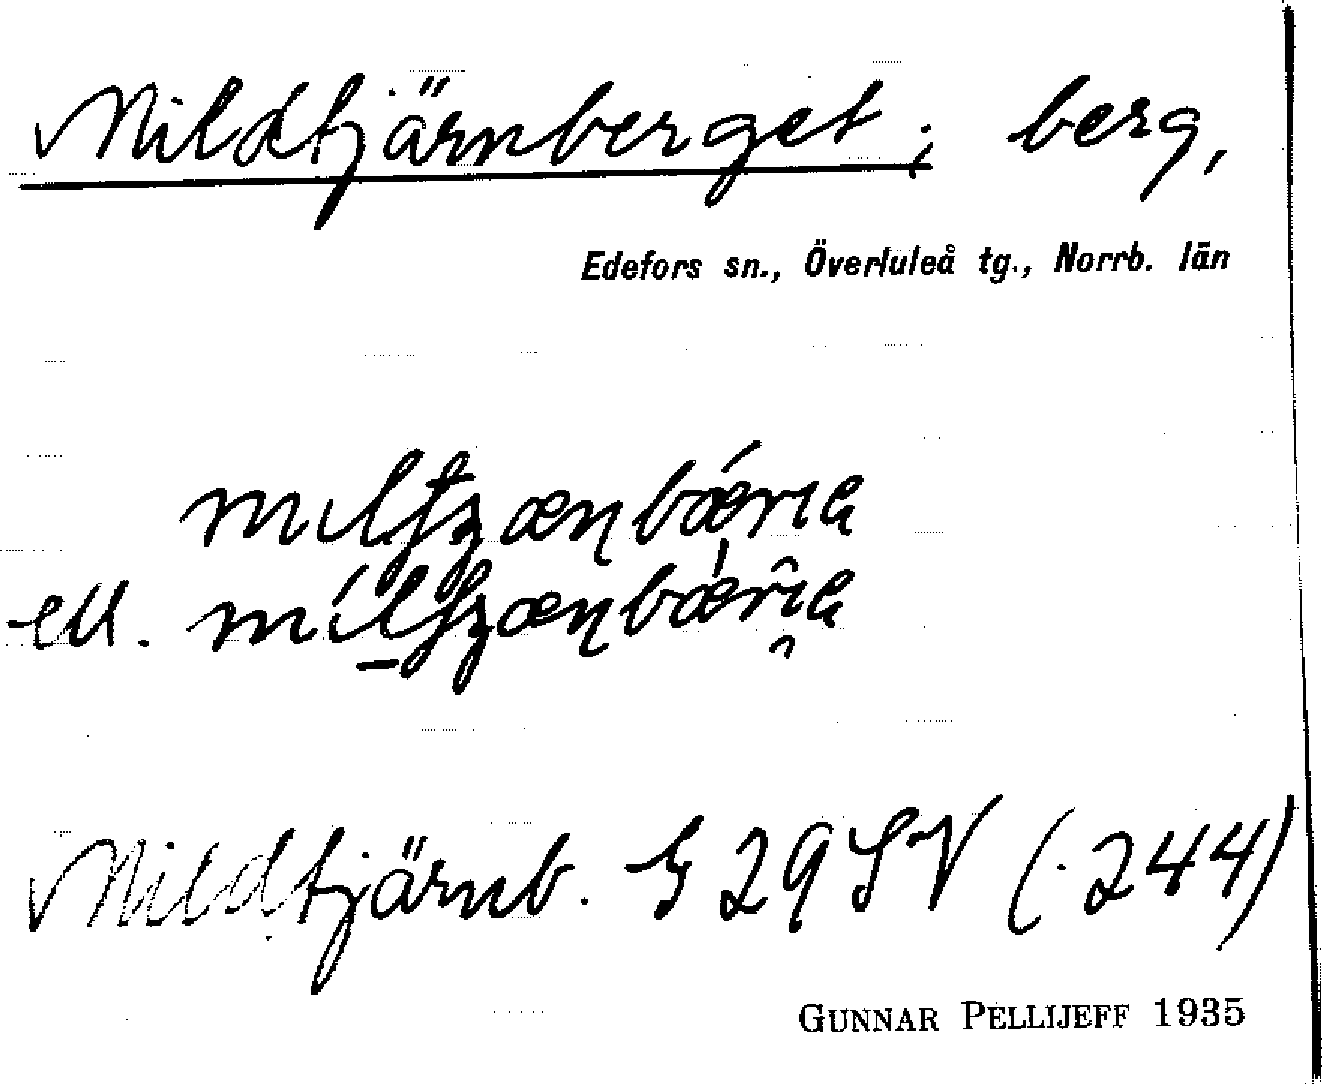 Mildtjärnberget; berg,
Edefors sn., Överluleå tg., Norrb. län
ell.
Mildtjärnb. G 29 SV (·244)
GUNNAR PELLIJEFF 1935